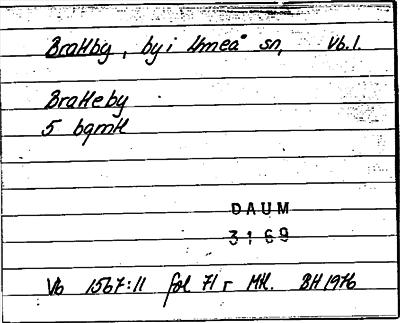 Brattby, by i Umeå sn, Vb.l.
Bratteby
5 bgmtl
DAUM
3169
Vb 1567:11 fol 71 r Mtl. BH 1976